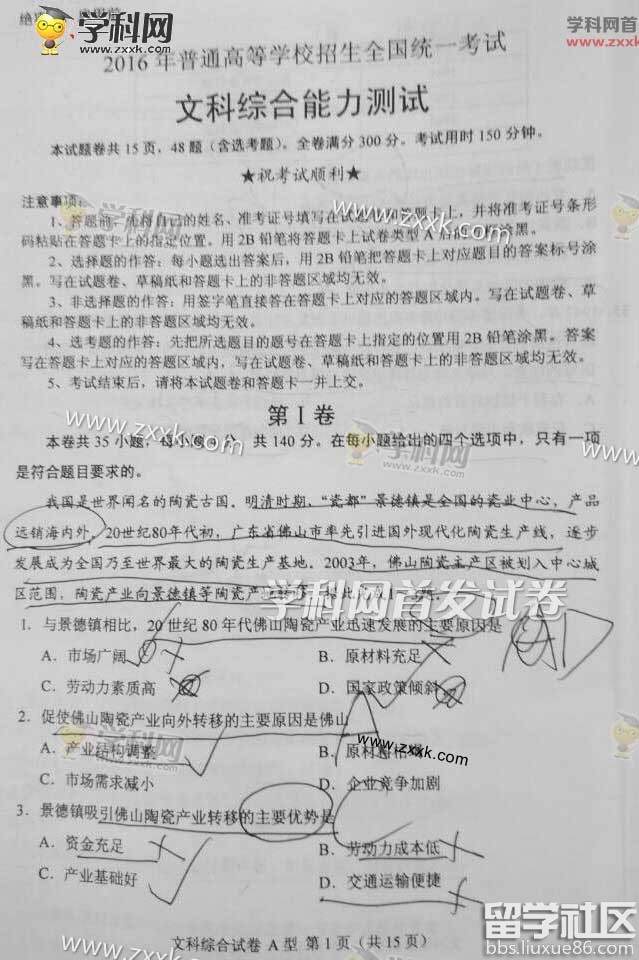 绝
学科网
www.zxxk.com
学科网
www.zxxk.
2016年普通高等学校招生全国统一考试
文科综合能力测试
本试题卷共15页，48题（含选考题）。全卷满分300分。考试用时150分钟。
★祝考试顺利★
注意事项：
学科网
www.zxxk.com
1、答题前，先将自己的姓名、准考证号填写在试题卷和答题卡上，并将准考证号条形
码粘贴在答题卡上的指定位置。用2B铅笔将答题卡上试卷类型A后的方框涂黑。
2、选择题的作答：每小题选出答案后，用2B铅笔把答题卡上对应题目的答案标号涂
黑。写在试题卷、草稿纸和答题卡上的非答题区域均无效。
3、非选择题的作答：用签字笔直接答在答题卡上对应的答题区域内。写在试题卷、草
稿纸和答题卡上的非答题区域均无效。
4、选考题的作答：先把所选题目的题号在答题卡上指定的位置用2B铅笔涂黑。答案
写在答题卡上对应的答题区域内，写在试题卷、草稿纸和答题卡上的非答题区域均无效。
5、考试结束后，请将本试题卷和答题卡一并上交。
第Ⅰ卷
www.zxxk.com
学科网
zxxk.com
www.zx
本卷共35小题，每小题 分，共140分。在每小题给出的四个选项中，只有一项
是符合题目要求的。
我国是世界闻名的陶瓷古国。明清时期，“瓷都”景德镇是全国的瓷业中心，产品
远销海内外。20世纪80年代初，广东省佛山市率先引进国外现代化陶瓷生产线，逐步
发展成为全国乃至世界最大的陶瓷生产基地。2003年，佛山陶瓷主产区被划入中心城
区范围，陶瓷产业向景德镇等陶瓷产业转移。据此完成1～3题。
学科网首发试卷
1．与景德镇相比，20世纪80年代佛山陶瓷产业迅速发展的主要原因是
A．市场广阔
B．原材料充足
C．劳动力素质高
D．国家政策倾斜
2．促使佛山陶瓷产业向外转移的主要原因是佛山
A．产业结构调整
B．原材料枯竭
C．市场需求减小
D．企业竞争加剧
学科网
www.zxxk.com
3．景德镇吸引佛山陶瓷产业转移的主要优势是
A．资金充足
B．劳动力成本低
C．产业基础好
D．交通运输便捷
文科综合试卷 A型 第1页（共15页）
www.zxxk.com
留学社区
bbs.liuxue86.com